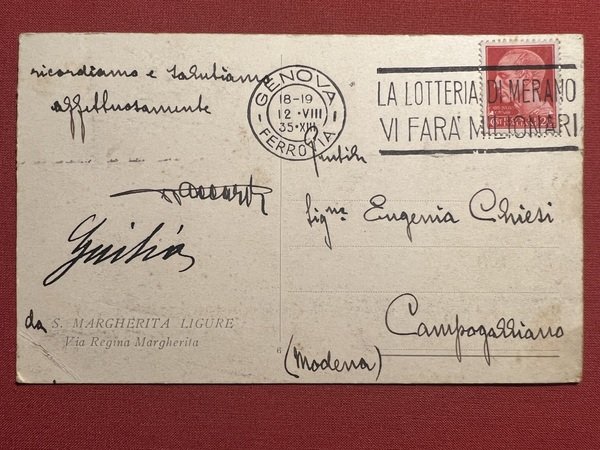 ricordiamo e salutiamo
affettuosamente
Giulia
da S. MARGHERITA LIGURE
Via Regina Margherita
6
GENOVA
18-19
12·VIII
35·XIII
FERROVIA
LA LOTTERIA DI MERANO
VI FARA' MILIONARI
Gentile
Sig.na Eugenia Chiesi
Campogalliano
(Modena)